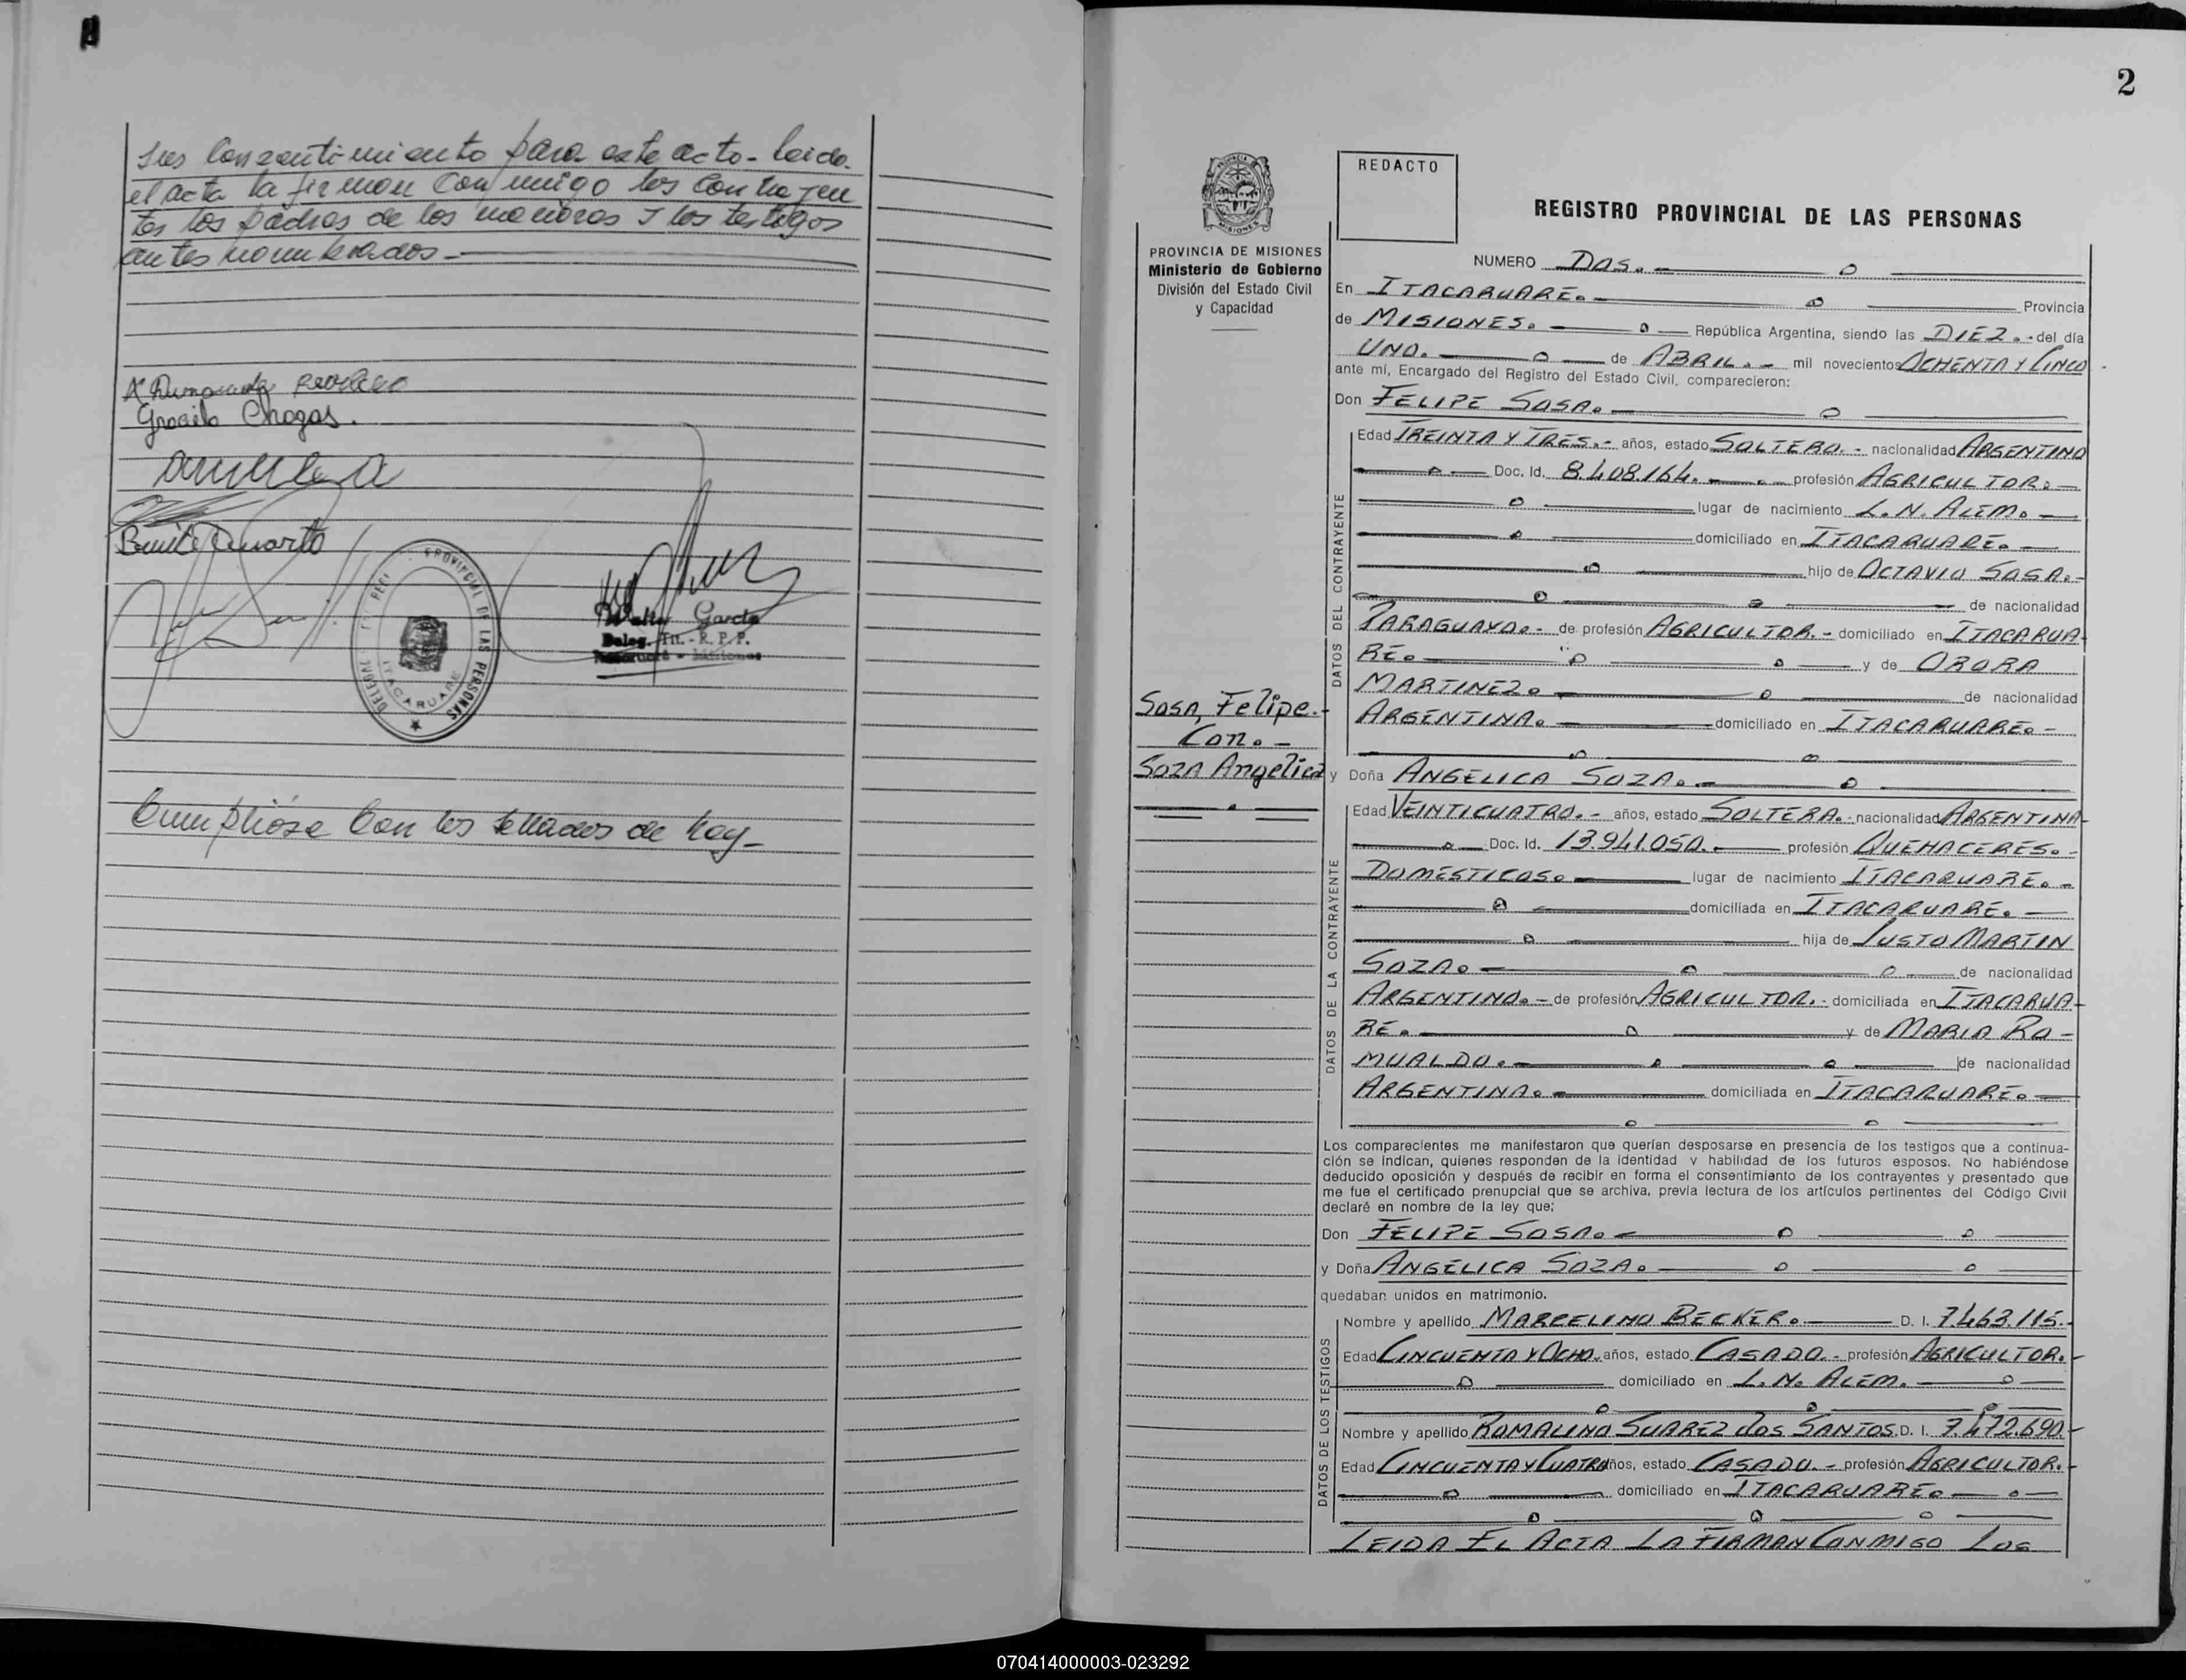 sus Consentimiento para este acto - leida.
el acta la firman Conmigo los Contrayen
tes los padres de los menores y los testigos
antes nombrados -
Graciela Chagas.
Benite Duarte
PROVINCIAL DE LAS PERSONAS
ITACARUARE
Walter Garcia
Deleg. Tit. - R. P. P.
Itacaruaré - Misiones
Cumpliose Con los sellados de hoy -
2
PROVINCIA DE MISIONES
Ministerio de Gobierno
División del Estado Civil
y Capacidad
REDACTO
REGISTRO PROVINCIAL DE LAS PERSONAS
NUMERO DOS.-
En ITACARUARE.- Provincia
de MISIONES.- República Argentina, siendo las DIEZ.- del día
UNO.- de ABRIL.- mil novecientos OCHENTA Y CINCO
ante mí, Encargado del Registro del Estado Civil, comparecieron:
Don FELIPE SOSA.-
DATOS DEL CONTRAYENTE
Edad TREINTA Y TRES.- años, estado SOLTERO.- nacionalidad ARGENTINO
Doc. Id. 8.408.164.- profesión AGRICULTOR.-
lugar de nacimiento L. N. ALEM.-
domiciliado en ITACARUARE.-
hijo de OCTAVIO SOSA.-
de nacionalidad
PARAGUAYO.- de profesión AGRICULTOR.- domiciliado en ITACARUA-
RE.- y de OBORA
MARTINEZ.- de nacionalidad
ARGENTINA.- domiciliado en ITACARUARE.-
Sosa, Felipe.-
Con.-
Soza Angelica
y Doña ANGELICA SOZA.-
DATOS DE LA CONTRAYENTE
Edad VEINTICUATRO.- años, estado SOLTERA.- nacionalidad ARGENTINA-
Doc. Id. 13.941.050.- profesión QUEHACERES.-
DOMESTICOS.- lugar de nacimiento ITACARUARE.-
domiciliada en ITACARUARE.-
hija de JUSTO MARTIN
SOZA.- de nacionalidad
ARGENTINO.- de profesión AGRICULTOR.- domiciliada en ITACARUA-
RE.- y de MARIA RO-
MUALDO.- de nacionalidad
ARGENTINA.- domiciliada en ITACARUARE.-
Los comparecientes me manifestaron que querían desposarse en presencia de los testigos que a continua-
ción se indican, quienes responden de la identidad y habilidad de los futuros esposos. No habiéndose
deducido oposición y después de recibir en forma el consentimiento de los contrayentes y presentado que
me fue el certificado prenupcial que se archiva, previa lectura de los artículos pertinentes del Código Civil
declaré en nombre de la ley que;
Don FELIPE SOSA.-
y Doña ANGELICA SOZA.-
quedaban unidos en matrimonio.
DATOS DE LOS TESTIGOS
Nombre y apellido MARCELINO BECKER.- D. I. 7.463.115.-
Edad CINCUENTA Y OCHO. años, estado CASADO.- profesión AGRICULTOR.-
domiciliado en L. N. ALEM.-
Nombre y apellido ROMALINO SUAREZ dos SANTOS. D. I. 7.472.690.-
Edad CINCUENTA Y CUATRO años, estado CASADO.- profesión AGRICULTOR.-
domiciliado en ITACARUARE.-
LEIDA EL ACTA LA FIRMAN CONMIGO LOS
070414000003-023292